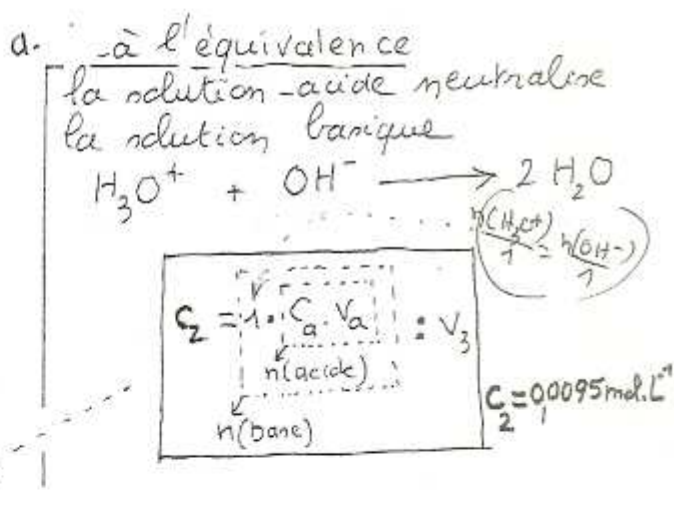 a. à l'équivalence
la solution acide neutralise
la solution basique
H₃O⁺ + OH⁻ → 2 H₂O
n(H₃O⁺)/1 = n(OH⁻)/1
C₂ = 1 · Cₐ · Vₐ : V₃
n(acide)
n(base)
C₂ = 0,0095 mol.L⁻¹